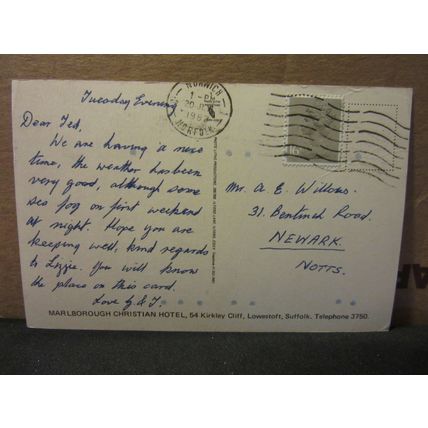 Tuesday Evening
Dear Ted,
We are having a nice
time, the weather has been
very good, although some
sea fog on first weekend
at night. Hope you are
keeping well, kind regards
to Lizzie. You will know
the place on this card.
Love G & J.
NORWICH
1 - PM
NORFOLK
Mr. A. E. Willows.
31. Bentinck Road.
NEWARK.
NOTTS.
MARLBOROUGH CHRISTIAN HOTEL, 54 Kirkley Cliff, Lowestoft, Suffolk. Telephone 3750.